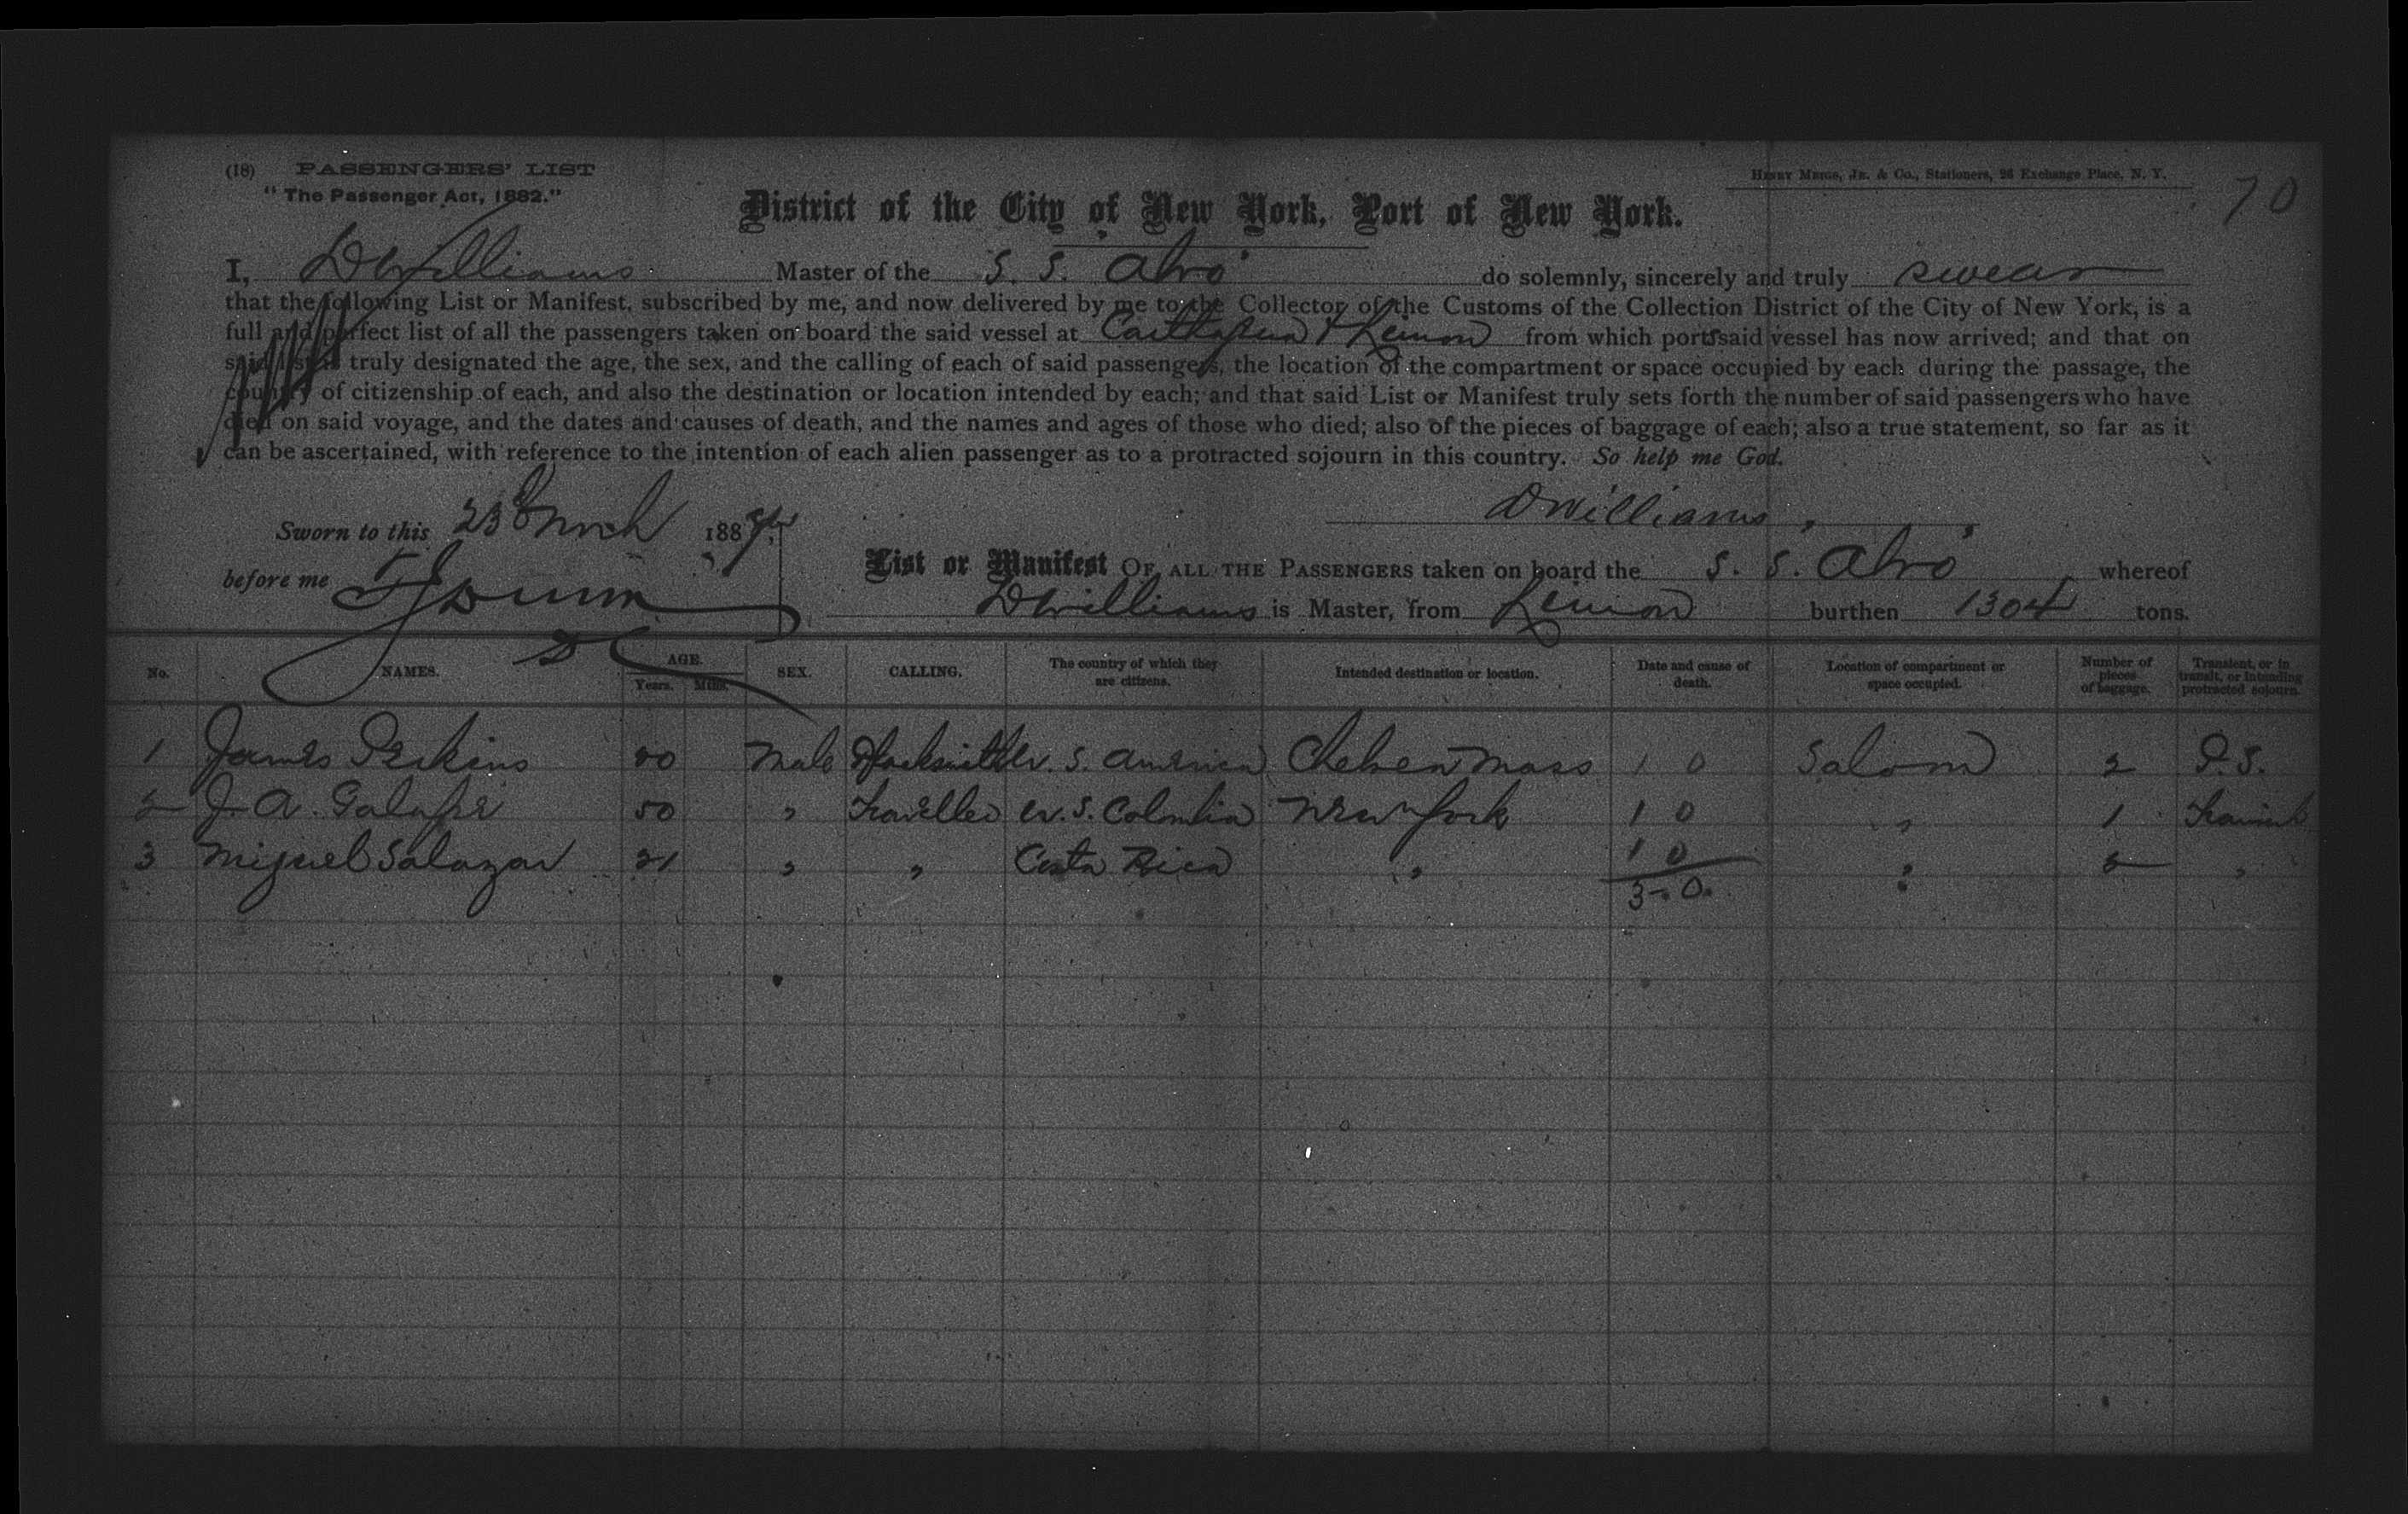 (18) PASSENGERS' LIST
"The Passenger Act, 1882."
HENRY MEIGS, JR. & Co., Stationers, 26 Exchange Place, N. Y.
70
District of the City of New York, Port of New York.
I, D Williams Master of the S. S. Alvo do solemnly, sincerely and truly swear
that the following List or Manifest, subscribed by me, and now delivered by me to the Collector of the Customs of the Collection District of the City of New York, is a
full and perfect list of all the passengers taken on board the said vessel at Carthagena & Limon from which ports said vessel has now arrived; and that on
said list is truly designated the age, the sex, and the calling of each of said passengers, the location of the compartment or space occupied by each during the passage, the
country of citizenship of each, and also the destination or location intended by each; and that said List or Manifest truly sets forth the number of said passengers who have
died on said voyage, and the dates and causes of death, and the names and ages of those who died; also of the pieces of baggage of each; also a true statement, so far as it
can be ascertained, with reference to the intention of each alien passenger as to a protracted sojourn in this country. So help me God.
D Williams
Sworn to this 23d March 188
before me
List or Manifest OF ALL THE PASSENGERS taken on board the S. S. Alvo whereof
D Williams is Master, from Limon burthen 1304 tons.
No. NAMES. AGE. Years. Mths. SEX. CALLING. The country of which they are citizens. Intended destination or location. Date and cause of death. Location of compartment or space occupied. Number of pieces of baggage. Transient, or in transit, or intending protracted sojourn.
1 James Perkins Male U. S. America Chelsea Mass 1 0 Saloon 2 P. S.
2 J. A. 50 " Traveller U. S. Colombia New York 1 0 " 1 Transient
3 Miguel Salazar 21 " " Costa Rica " 1 0 " 2 "
3-0